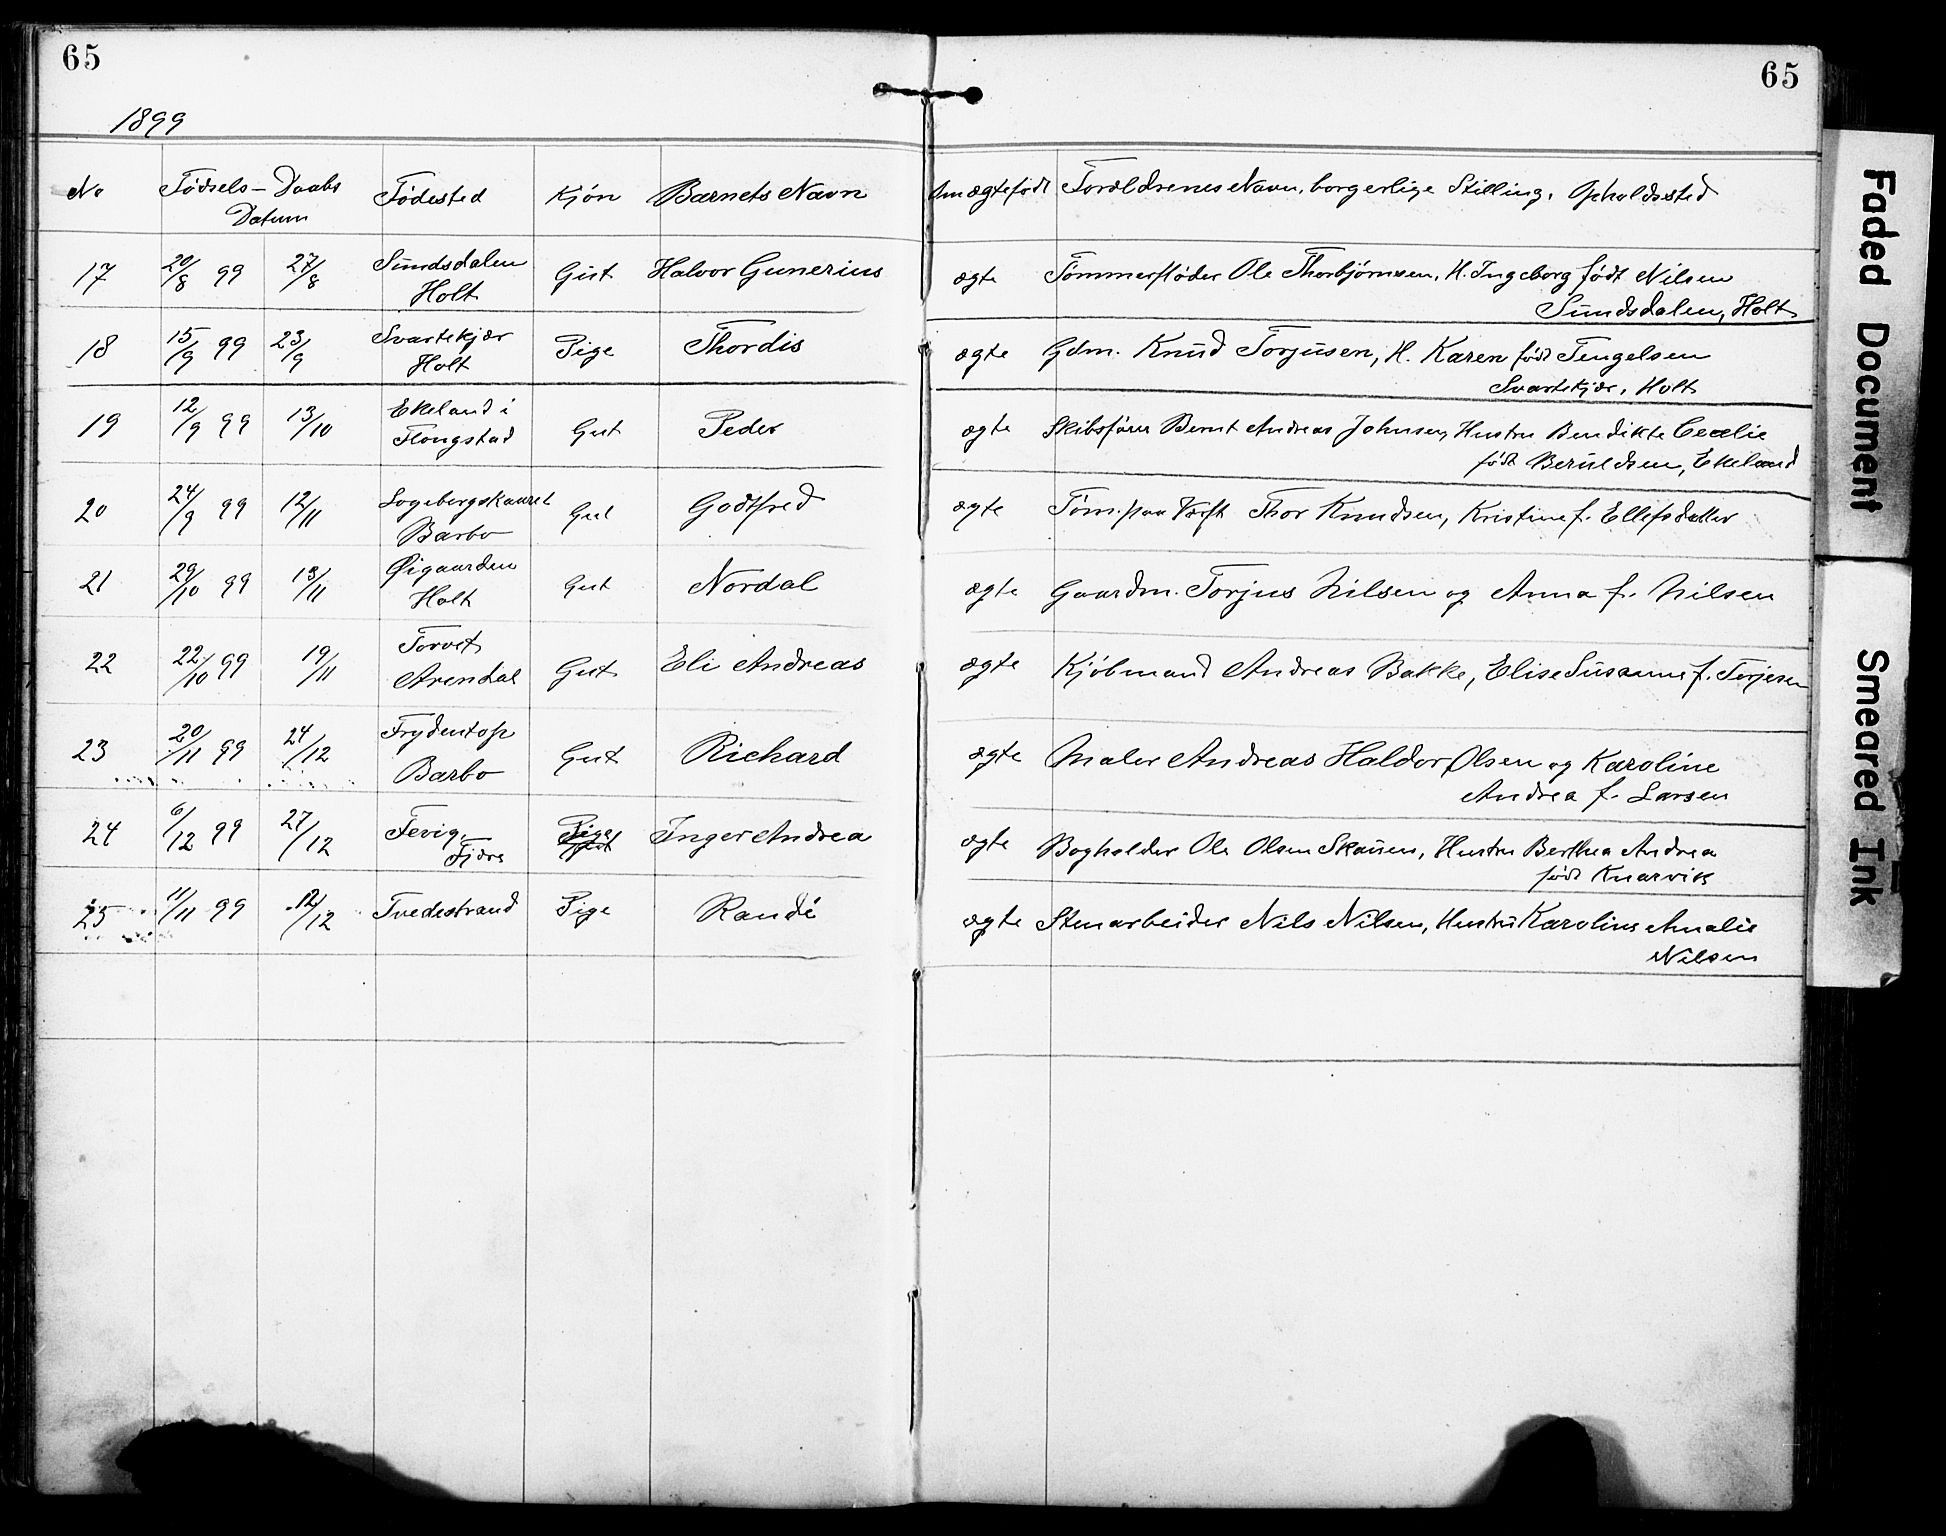 65
65
1899
No Fødsels- Daabs Fødested Kjön Barnets Navn Om ægtefødt Forældrenes Navn, borgerlige Stilling, Opholdssted
Datum
17 20/8 99 27/8 Sundsdalen Gut Halvor Gunerius ægte Tømmerfløder Ole Thorbjørnsen, H. Ingeborg født Nilsen
Holt Sundsdalen, Holt
18 15/9 99 23/9 Svartekjær Pige Thordis ægte Gdm. Knud Torjusen, H. Karen født Tengelsen
Holt Svartekjær, Holt
19 12/9 99 13/10 Ekeland i Gut Peder ægte Skibsfører Bernt Andreas Johnsen, Hustru Bendikte Cecelie
Flongstad født Beruldsen, Ekeland
20 24/9 99 12/11 Gut Godtfred ægte Tøm. paa Værft Thor Knudsen, Kristine f. Ellefsdatter
Barbo
21 29/10 99 13/11 Øigaarden Gut Nordal ægte Gaardm. Torjus Nilsen og Anna f. Nilsen
Holt
22 22/10 99 19/11 Torvet Gut Eli Andreas ægte Kjøbmand Andreas Bakke, Elise Susanne f. Torjesen
Arendal
23 20/11 99 24/12 Frydentop Gut Richard ægte Maler Andreas Haldor Olsen og Karoline
Barbo Andrea f. Larsen
24 6/12 99 27/12 Fevig, Pige Inger Andrea ægte Bogholder Ole Olsen Skausen, Hustru Berthea Andrea
Fjære født Knarvik
25 11/11 99 12/12 Tvedestrand Pige Randé ægte Stenarbeider Nils Nilsen, Hustru Karoline Amalie
Nilsen
Faded Document
Smeared Ink